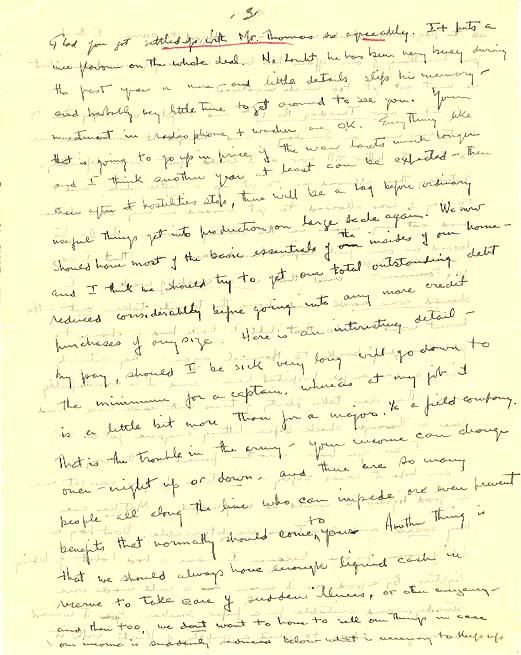 - 3 -
Glad you got settled up with Mr. Thomas so agreeably. It puts a
nice flavour on the whole deal. No doubt he has been very busy during
the past year or more, and little details slip his memory -
and probably very little time to get around to see you. Your
investment in radiophone, + washer are OK. Everything like
that is going to go up in price, if the war lasts much longer
and I think another year at least can be expected - then
even after hostilities stop, there will be a lag before ordinary
useful things get into production on large scale again. We now
should have most of the basic essentials of the insides of our home -
and I think we should try to get our total outstanding debt
reduced considerably before going into any more credit
purchases of any size. Here is an interesting detail -
my pay, should I be sick very long will go down to
the minimum for a captain, whereas at my job it
is a little bit more than for a major. a field company.
That is the trouble in the army - your income can change
over-night up or down. and there are so many
people all along the line who can impede, or even prevent
benefits that normally should come to you. Another thing is
that we should always have enough liquid cash in
reserve to take care of sudden illness, or other emergency -
and then too, we don't want to have to sell our things in case
our income is suddenly reduced below what is necessary to keep up